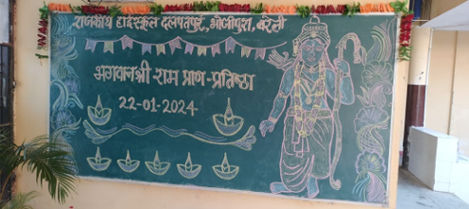 राजकीय हाईस्कूल दलपतपुर, भोजीपुरा, बरेली
भगवान श्री राम प्राण-प्रतिष्ठा
22-01-2024